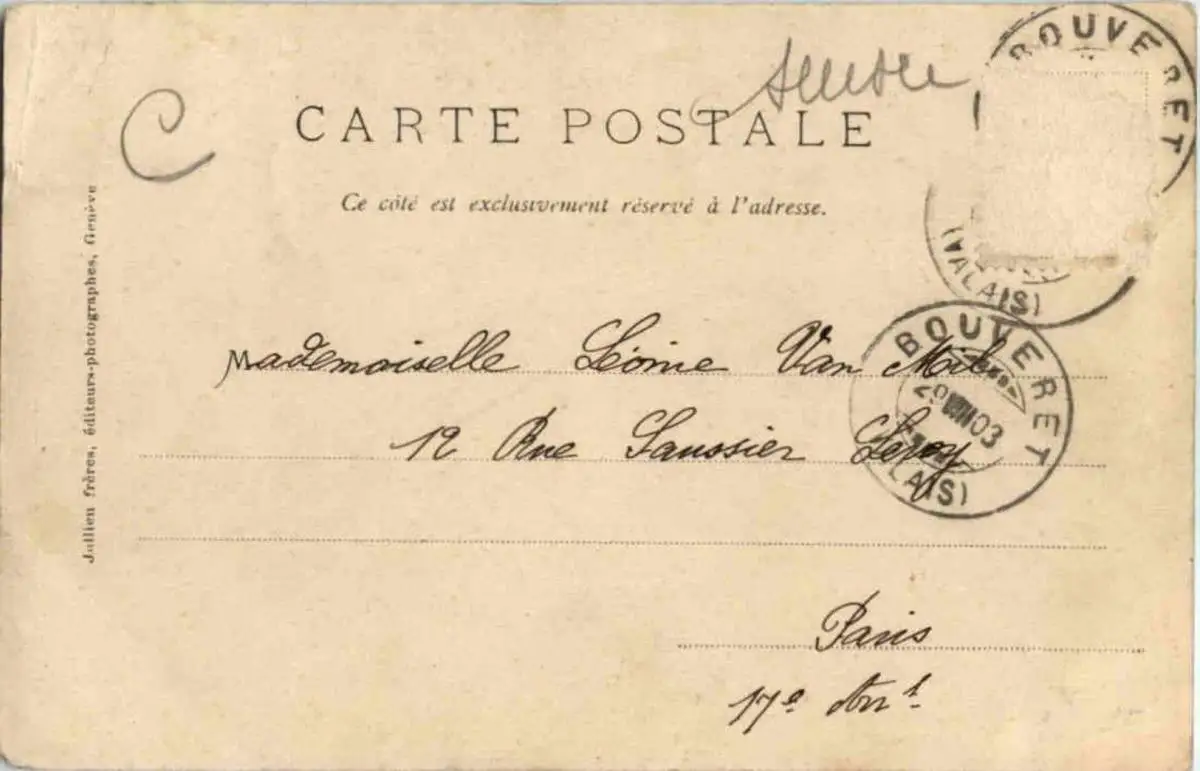 BOUVERET
CARTE POSTALE
Ce côté est exclusivement réservé à l'adresse.
(VALAIS)
Jullien frères, éditeurs-photographes, Genève
Mademoiselle Léonie Van Mil
BOUVERET
29 VIII 03
(VALAIS)
12 Rue Saussier Leroy
Paris
17e Arrt